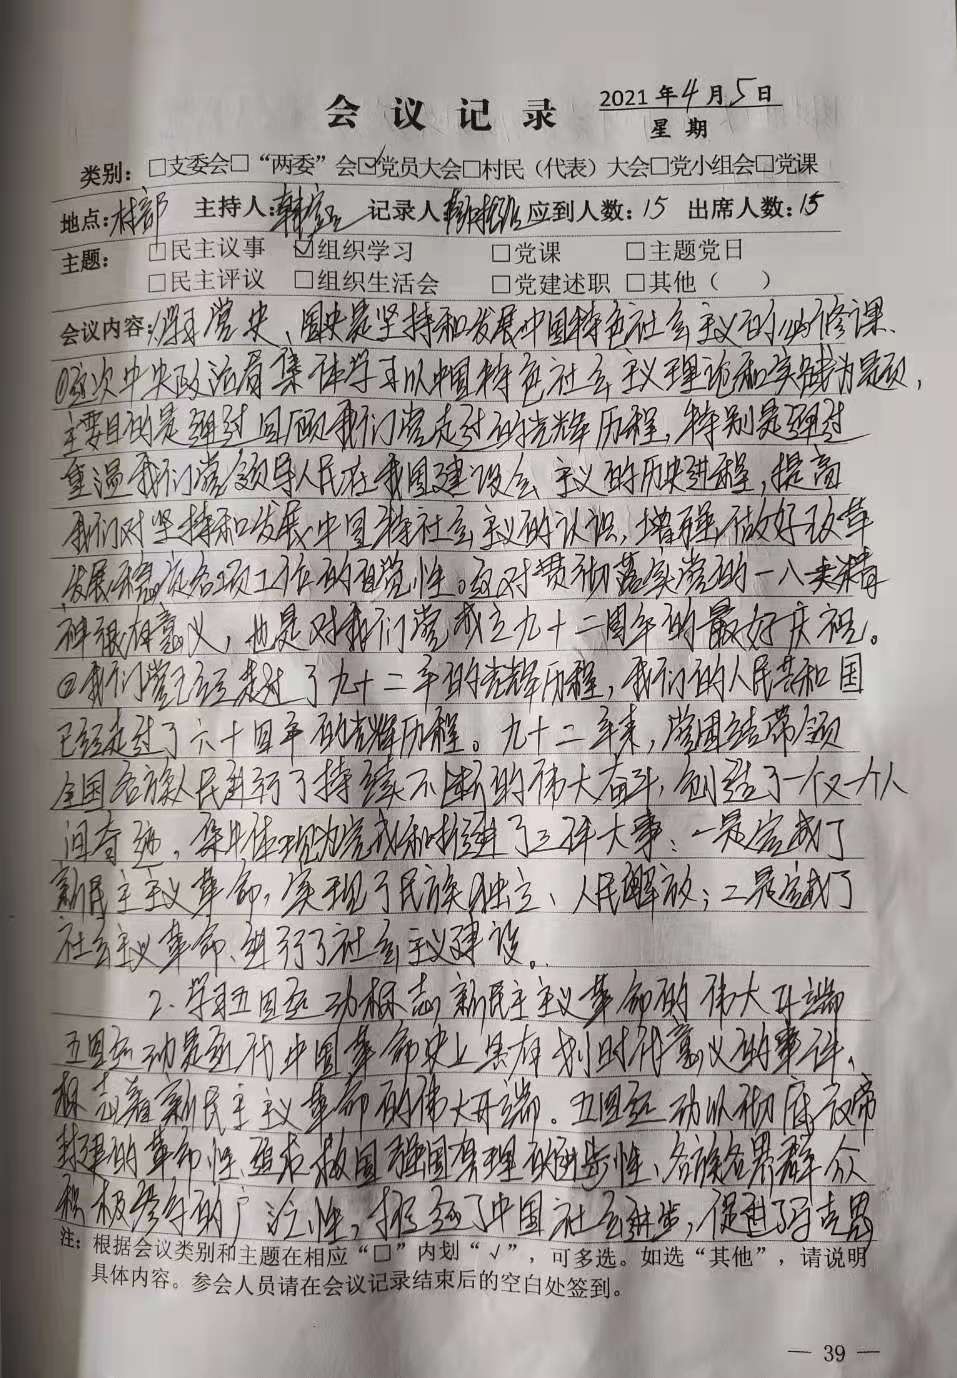 会议记录
2021年4月5日
星期
类别：□支委会□“两委”会☑党员大会□村民（代表）大会□党小组会□党课
地点：村部 主持人：韩 记录人 应到人数：15 出席人数：15
主题：□民主议事 ☑组织学习 □党课 □主题党日
□民主评议 □组织生活会 □党建述职 □其他（ ）
会议内容：1.学习党史、国史是坚持和发展中国特色社会主义的必修课、
①这次中央政治局集体学习以中国特色社会主义理论和实践为题，
主要目的是通过回顾我们党走过的光辉历程，特别是通过
重温我们党领导人民在我国建设会主义的历史进程，提高
我们对坚持和发展中国特社会主义的认识，增强做好改革
发展稳定各项工作的自觉性。这对贯彻落实党的一八大精
神很有意义，也是对我们党成立九十二周年的最好庆祝。
②我们党已经走过了九十二年的光辉历程，我们的人民共和国
已经走过了六十四年的光辉历程。九十二年来，党团结带领
全国各族人民进行了持续不断的伟大奋斗，创造了一个又一个人
间奇迹，集中体现为完成和推进了三件大事：一是完成了
新民主主义革命，实现了民族独立、人民解放；二是完成了
社会主义革命、进行了社会主义建设。
2.学习五四运动标志新民主主义革命的伟大开端
五四运动是近代中国革命史上具有划时代意义的事件，
标志着新民主主义革命的伟大开端。五四运动以彻底反帝
封建的革命性、追求救国强国真理的进步性、各族各界群众
积极参与的广泛性，推动了中国社会进步，促进了马克思
注：根据会议类别和主题在相应“□”内划“√”，可多选。如选“其他”，请说明
具体内容。参会人员请在会议记录结束后的空白处签到。
— 39 —